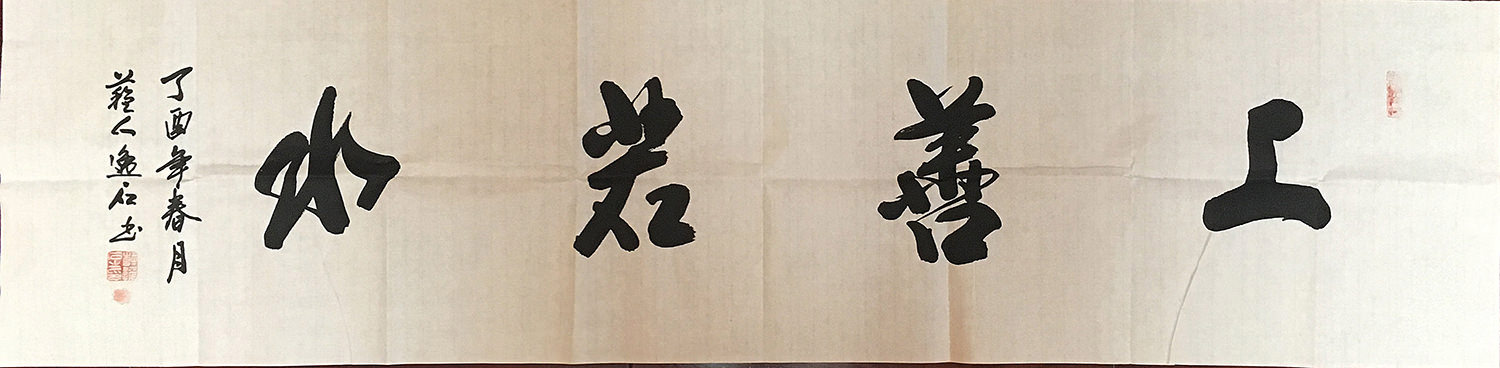 上善若水
丁酉年春月
蘓人逸石书